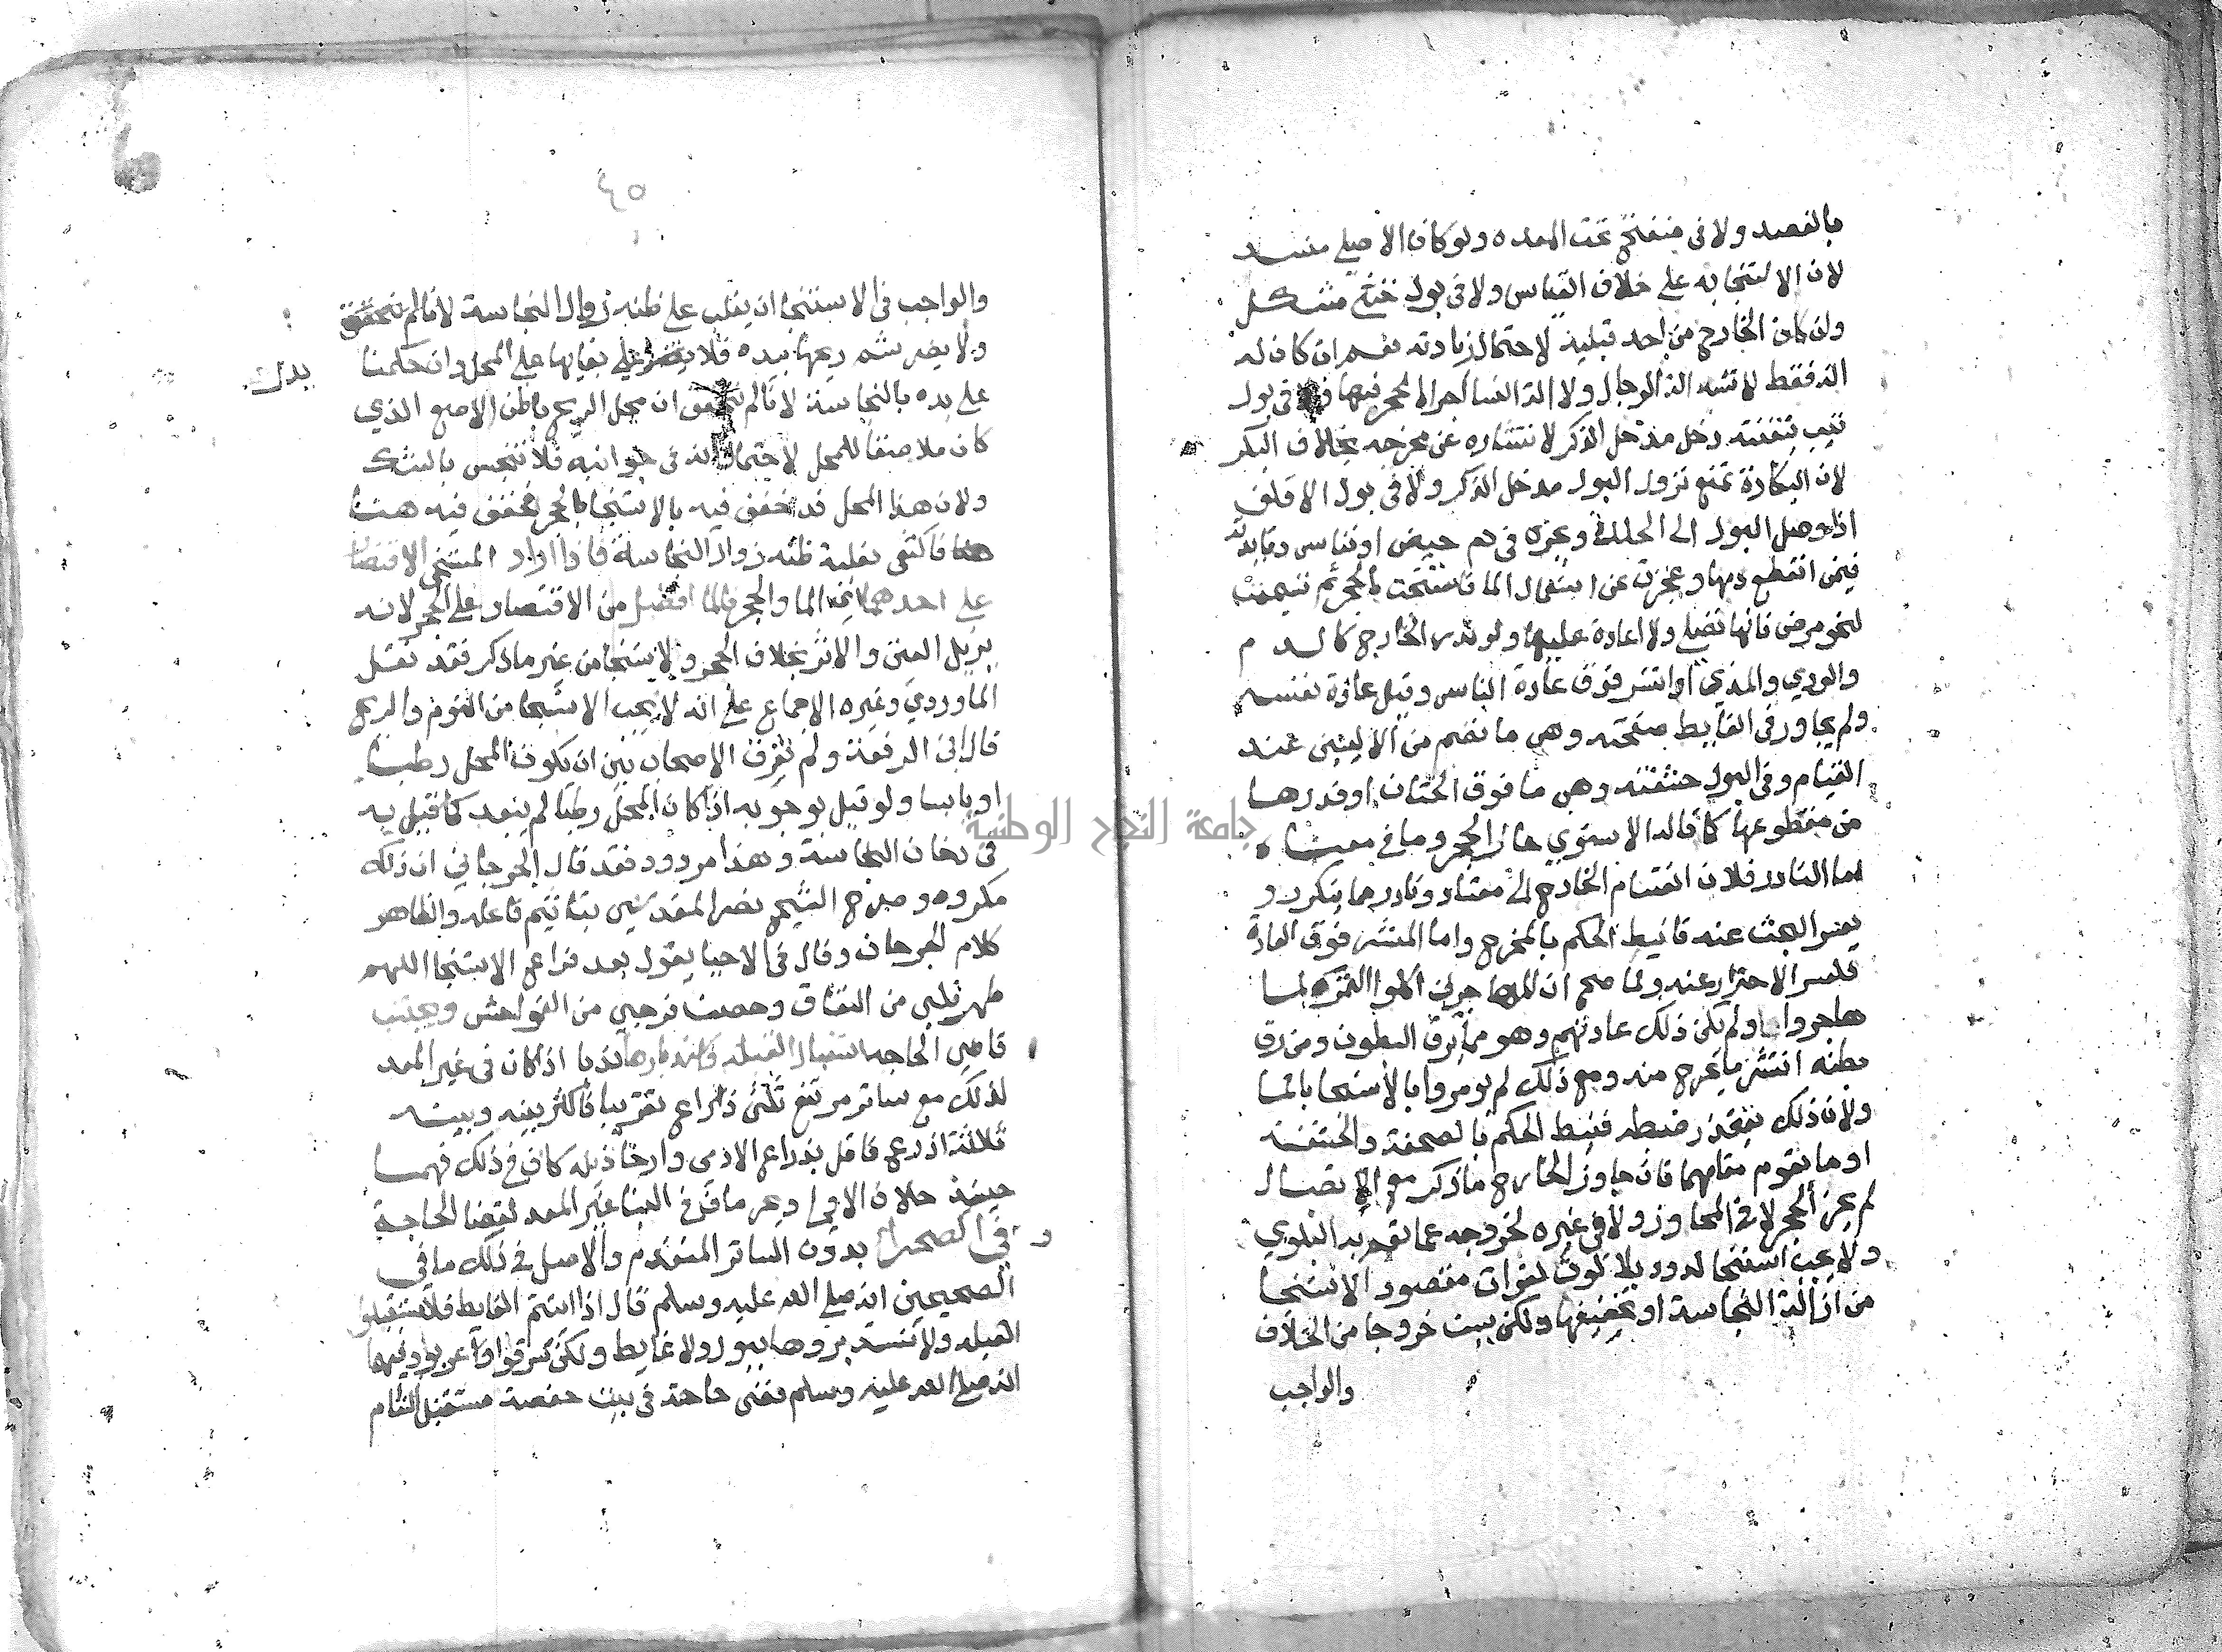 بالفصد ولا في منفتح تحت المعده ولو كان الاصلي منسد
لان الاستنجا به على خلاف القياس ولا في بول خنثى مشكل
وان كان الخارج من احد قبليه لاحتمال زيادته نعم ان كان له
الة فقط لا تشبه الة الرجال ولا الة النسا اجزا الحجر فيها ولا في بول
ثيب تيقنته دخل مدخل الذكر لانتشاره عن مخرجه بخلاف البكر
لان البكارة تمنع نزول البول مدخل الذكر ولا في بول الاقلف
اذا وصل البول الى الجلدة ويجزه في دم حيض او نفاس وفايدته
فيمن انقطع دمها وعجزت عن استعمال الما فاستنجت بالحجر ثم تيممت
لنحو مرض فانها تصلي ولا اعادة عليها ولو ندر الخارج كالدم
والودي والمذي او انتشر فوق عادة الناس وقيل عادة نفسه
ولم يجاوز في الغايط صفحته وهي ما ينضم من الاليين عند
القيام وفي البول حشفته وهي ما فوق الختان او قدرها
من مقطوعها كما قاله الاسنوي جاز الحجر وما في معناه
اما النادر فلان انقسام الخارج الى معتاد ونادر مما يتكرر و
يعسر البحث عنه فانيط الحكم بالمخرج واما المنتشر فوق العادة
فلعسر الاحتراز عنه ولما صح ان المهاجرين اكلوا التمر لما
هاجروا ولم يكن ذلك عادتهم وهو مما يرق البطون ومن رق
بطنه انتشر ما يخرج منه ومع ذلك لم يومروا بالاستنجا بالما
ولان ذلك يتعذر ضبطه فنيط الحكم بالصفحة والحشفة
او ما يقوم مقامهما فان جاوز الخارج ما ذكر مع الاتصال
لم يجز الحجر لا في المجاوز ولا في غيره لخروجه عما تعم به البلوي
ولا يجب استنجا لدود بلا لوث لفوات مقصود الاستنجا
من ازالة النجاسة او تخفيفها ولكن يسن خروجا من الخلاف
والواجب
٤٥
والواجب في الاستنجا ان يغلب على ظنه زوال النجاسة لانا لم نتحقق
ولا يضر شم ريحها بيده فلا يدل على بقايها على المحل وان حكمنا
يدل
على يده بالنجاسة لانا لم نتحقق ان محل الريح باطن الاصبع الذي
كان ملاصقا للمحل لاحتمال انه في جوانبه فلا تنجس بالشك
ولان هذا المحل قد خفف فيه بالاستنجا بالحجر فخفف فيه هنا
فاكتفى بغلبة ظنه زوال النجاسة فاذا اراد المستنجي الاقتصار
على احدهما اي الما والحجر فالما افضل من الاقتصار على الحجر لانه
يزيل العين والاثر بخلاف الحجر ولا يستنجا من غير ما ذكر فقد نقل
الماوردي وغيره الاجماع على انه لا يجب الاستنجا من النوم والريح
قال ابن الرفعة ولم يفرق الاصحاب بين ان يكون المحل رطبا
او يابسا ولو قيل بوجوبه اذا كان المحل رطبا لم يبعد كما قيل به
في دخان النجاسة وهذا مردود فقد قال الجرجاني ان ذلك
مكروه وصرح الشيخ نصر المقدسي بتاثيم فاعله والظاهر
كلام الجرجاني وقال في الاحيا يقول بعد فراغ الاستنجا اللهم
طهر قلبي من النفاق وحصن فرجي من الفواحش ويجتنب
قاضي الحاجه استقبال القبله واستدبارها ندبا اذا كان في غير المعد
لذلك مع ساتر مرتفع ثلثى ذراع تقريبا فاكثر بينه وبينه
ثلاثة اذرع فاقل بذراع الادمي وارخا ذيله كاف في ذلك فهما
حينيذ خلاف الاولى ويحرمان في البنا غير المعد لقضا الحاجة
و في الصحرا بدون الساتر المتقدم والاصل في ذلك ما في
الصحيحين انه صلى الله عليه وسلم قال اذا اتيتم الغايط فلا تستقبلوا
القبله ولا تستدبروها ببول ولا غايط ولكن شرقوا او غربوا وفيهما
انه صلى الله عليه وسلم قضى حاجته في بيت حفصة مستقبل الشام
جامعة النجاح الوطنية